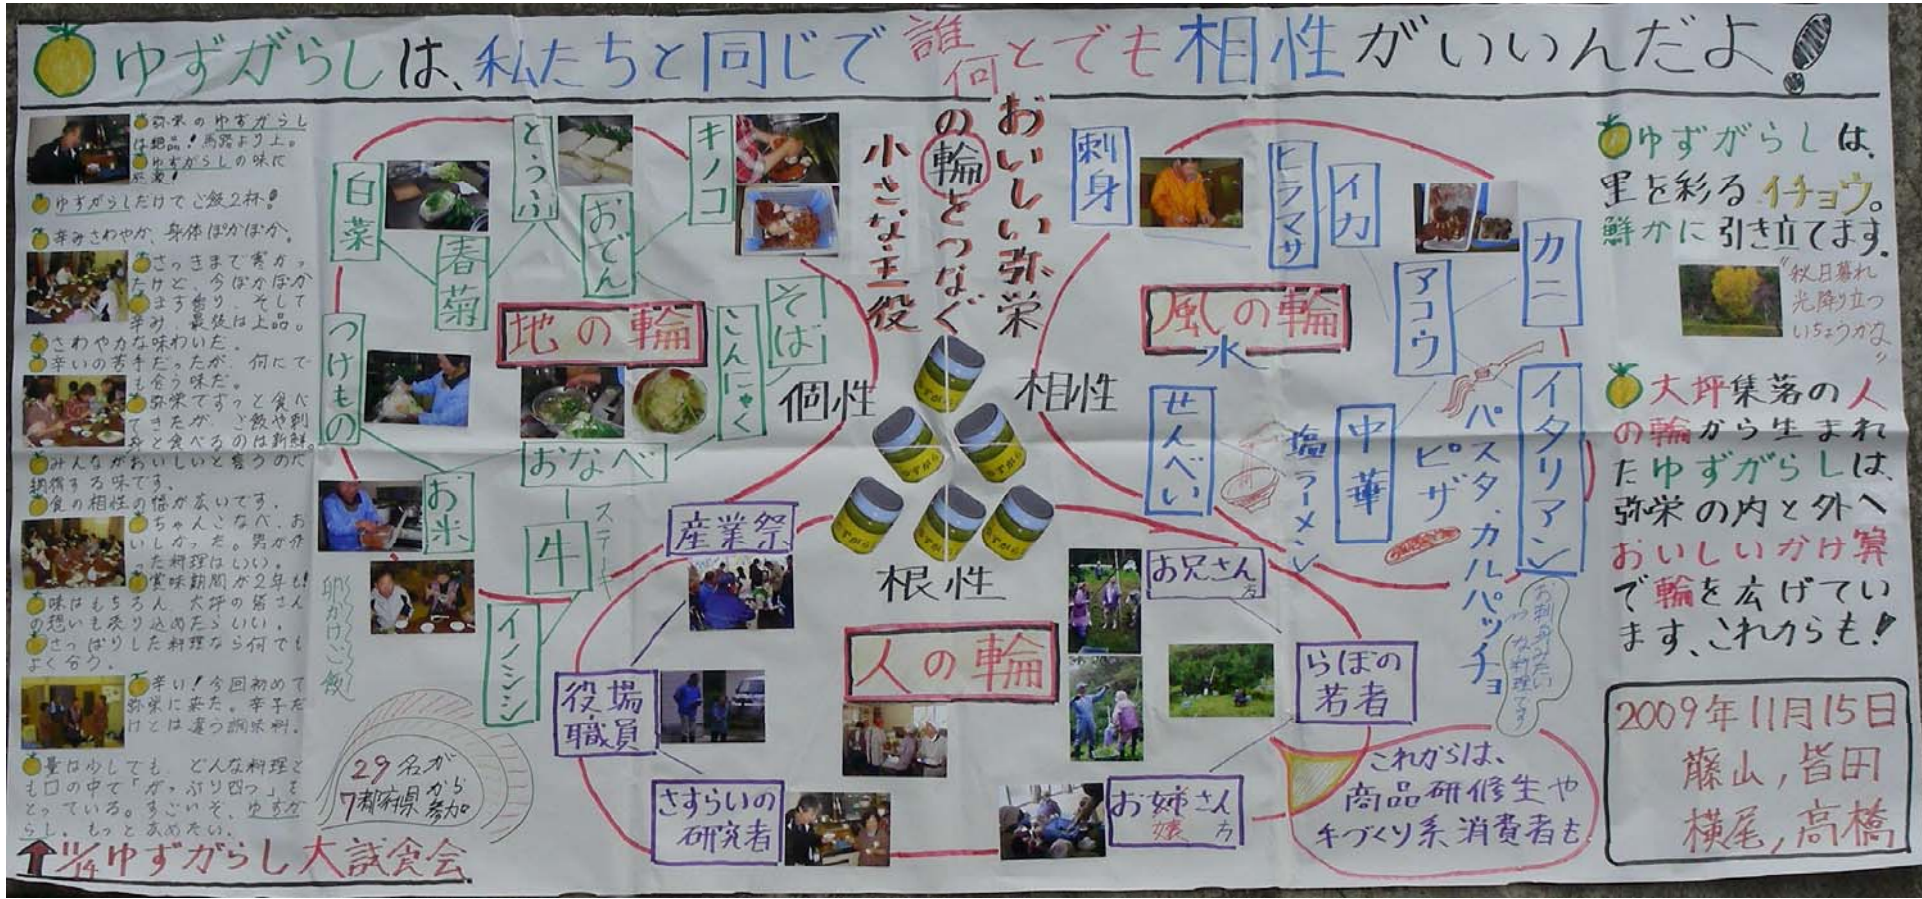 ゆずがらしは、私たちと同じで誰何とでも相性がいいんだよ!
弥栄のゆずがらし
は絶品!馬路より上。
ゆずがらしの味に
ゆずがらしだけでご飯2杯!
辛みさわやか、身体ぽかぽか。
さっきまで寒かっ
たけど、今ぽかぽか
まず香り、そして
辛み、最後は上品。
さわやかな味わいだ。
辛いの苦手だったが、何にで
も合う味だ。
弥栄でずっと食べ
てきたが、ご飯や刺
身と食べるのは新鮮。
みんながおいしいと言うのだ
納得する味です。
食の相性の幅が広いです。
ちゃんこなべ、お
いしかった。男が作
った料理はいい。
賞味期間が2年も!
味はもちろん、大坪の皆さん
の想いも売り込めたらいい。
さっぱりした料理なら何でも
よく合う。
辛い!今回初めて
弥栄に来た。辛子だ
けとは違う調味料。
量は少しでも、どんな料理と
も口の中で「がっぷり四つ」を
とっている。すごいぞ、ゆずが
らし。もっと広めたい。
11/14ゆずがらし大試食会
29名が
7都府県から
参加
白菜
春菊
とうふ
おでん
キノコ
そば
こんにゃく
地の輪
つけもの
おなべ
お米
卵かけご飯
牛
ステーキ
イノシシ
おいしい弥栄
の輪をつなぐ
小さな主役
個性
相性
根性
刺身
ヒラマサ
イカ
アコウ
カニ
風の輪
水
せんべい
塩ラーメン
中華
イタリアン
パスタ、カルパッチョ
ピザ
お刺身みたい
な料理です
人の輪
産業祭
役場
職員
さすらいの
研究者
お兄さん
方
らぼの
若者
お姉さん
嬢 方
これからは、
商品研修生や
手づくり系消費者も
ゆずがらしは、
里を彩るイチョウ。
鮮かに引き立てます。
"秋日暮れ
光降り立つ
いちょうかな"
大坪集落の人
の輪から生まれ
たゆずがらしは、
弥栄の内と外へ
おいしいかけ算
で輪を広げてい
ます、これからも!
2009年11月15日
藤山,皆田
横尾,高橋